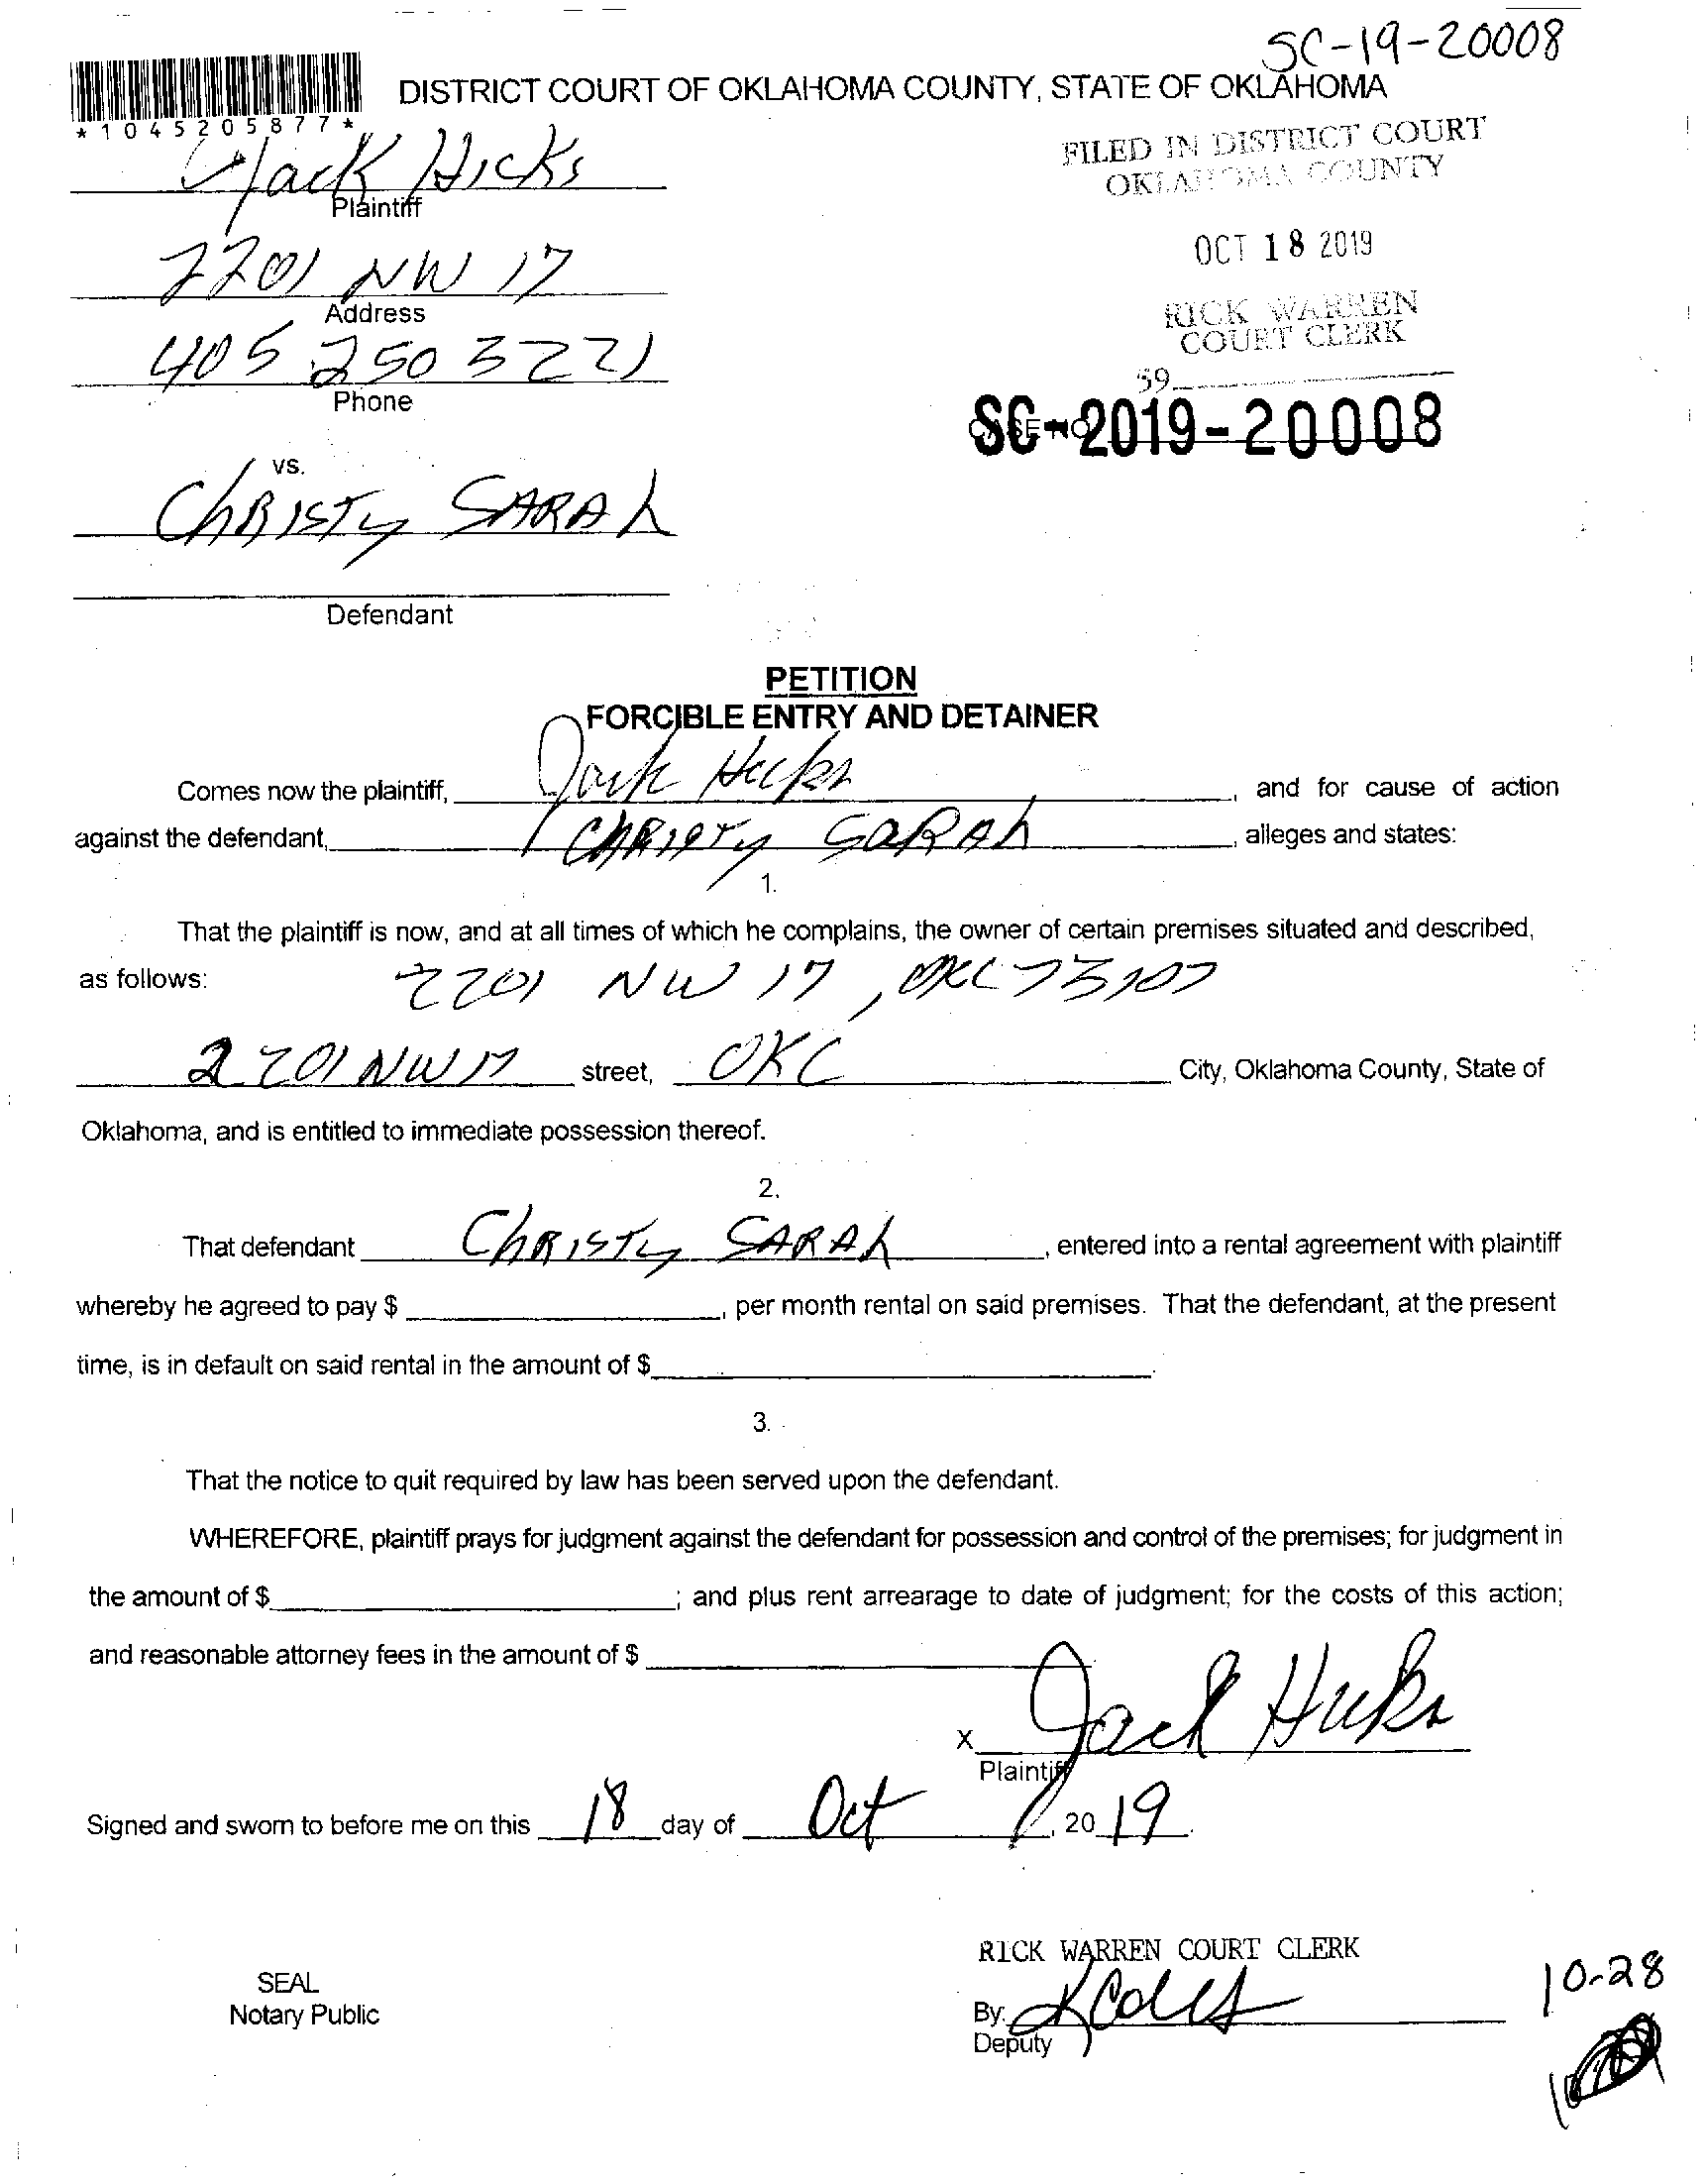 SC-19-20008
DISTRICT COURT OF OKLAHOMA COUNTY, STATE OF OKLAHOMA
*1045205877*
FILED IN DISTRICT COURT
OKLAHOMA COUNTY
Jack Hicks
Plaintiff
OCT 18 2019
2201 NW 17
Address
RICK WARREN
COURT CLERK
405 250 3221
Phone
59
CASE NO.
SC-2019-20008
vs.
ChRISTy SARAh
Defendant
PETITION
FORCIBLE ENTRY AND DETAINER
Comes now the plaintiff, Jack Hicks, and for cause of action
against the defendant, ChRISTy SaRAh, alleges and states:
1.
That the plaintiff is now, and at all times of which he complains, the owner of certain premises situated and described,
as follows: 2201 NW 17, OKC 73107
2201 NW 17 street, OKC City, Oklahoma County, State of
Oklahoma, and is entitled to immediate possession thereof.
2.
That defendant ChRISTy SARAh, entered into a rental agreement with plaintiff
whereby he agreed to pay $ , per month rental on said premises. That the defendant, at the present
time, is in default on said rental in the amount of $ .
3.
That the notice to quit required by law has been served upon the defendant.
WHEREFORE, plaintiff prays for judgment against the defendant for possession and control of the premises; for judgment in
the amount of $ ; and plus rent arrearage to date of judgment; for the costs of this action;
and reasonable attorney fees in the amount of $
X Jack Hicks
Plaintiff
Signed and sworn to before me on this 18 day of Oct, 20 19.
RICK WARREN COURT CLERK
10-28
SEAL
Notary Public
By:
Deputy